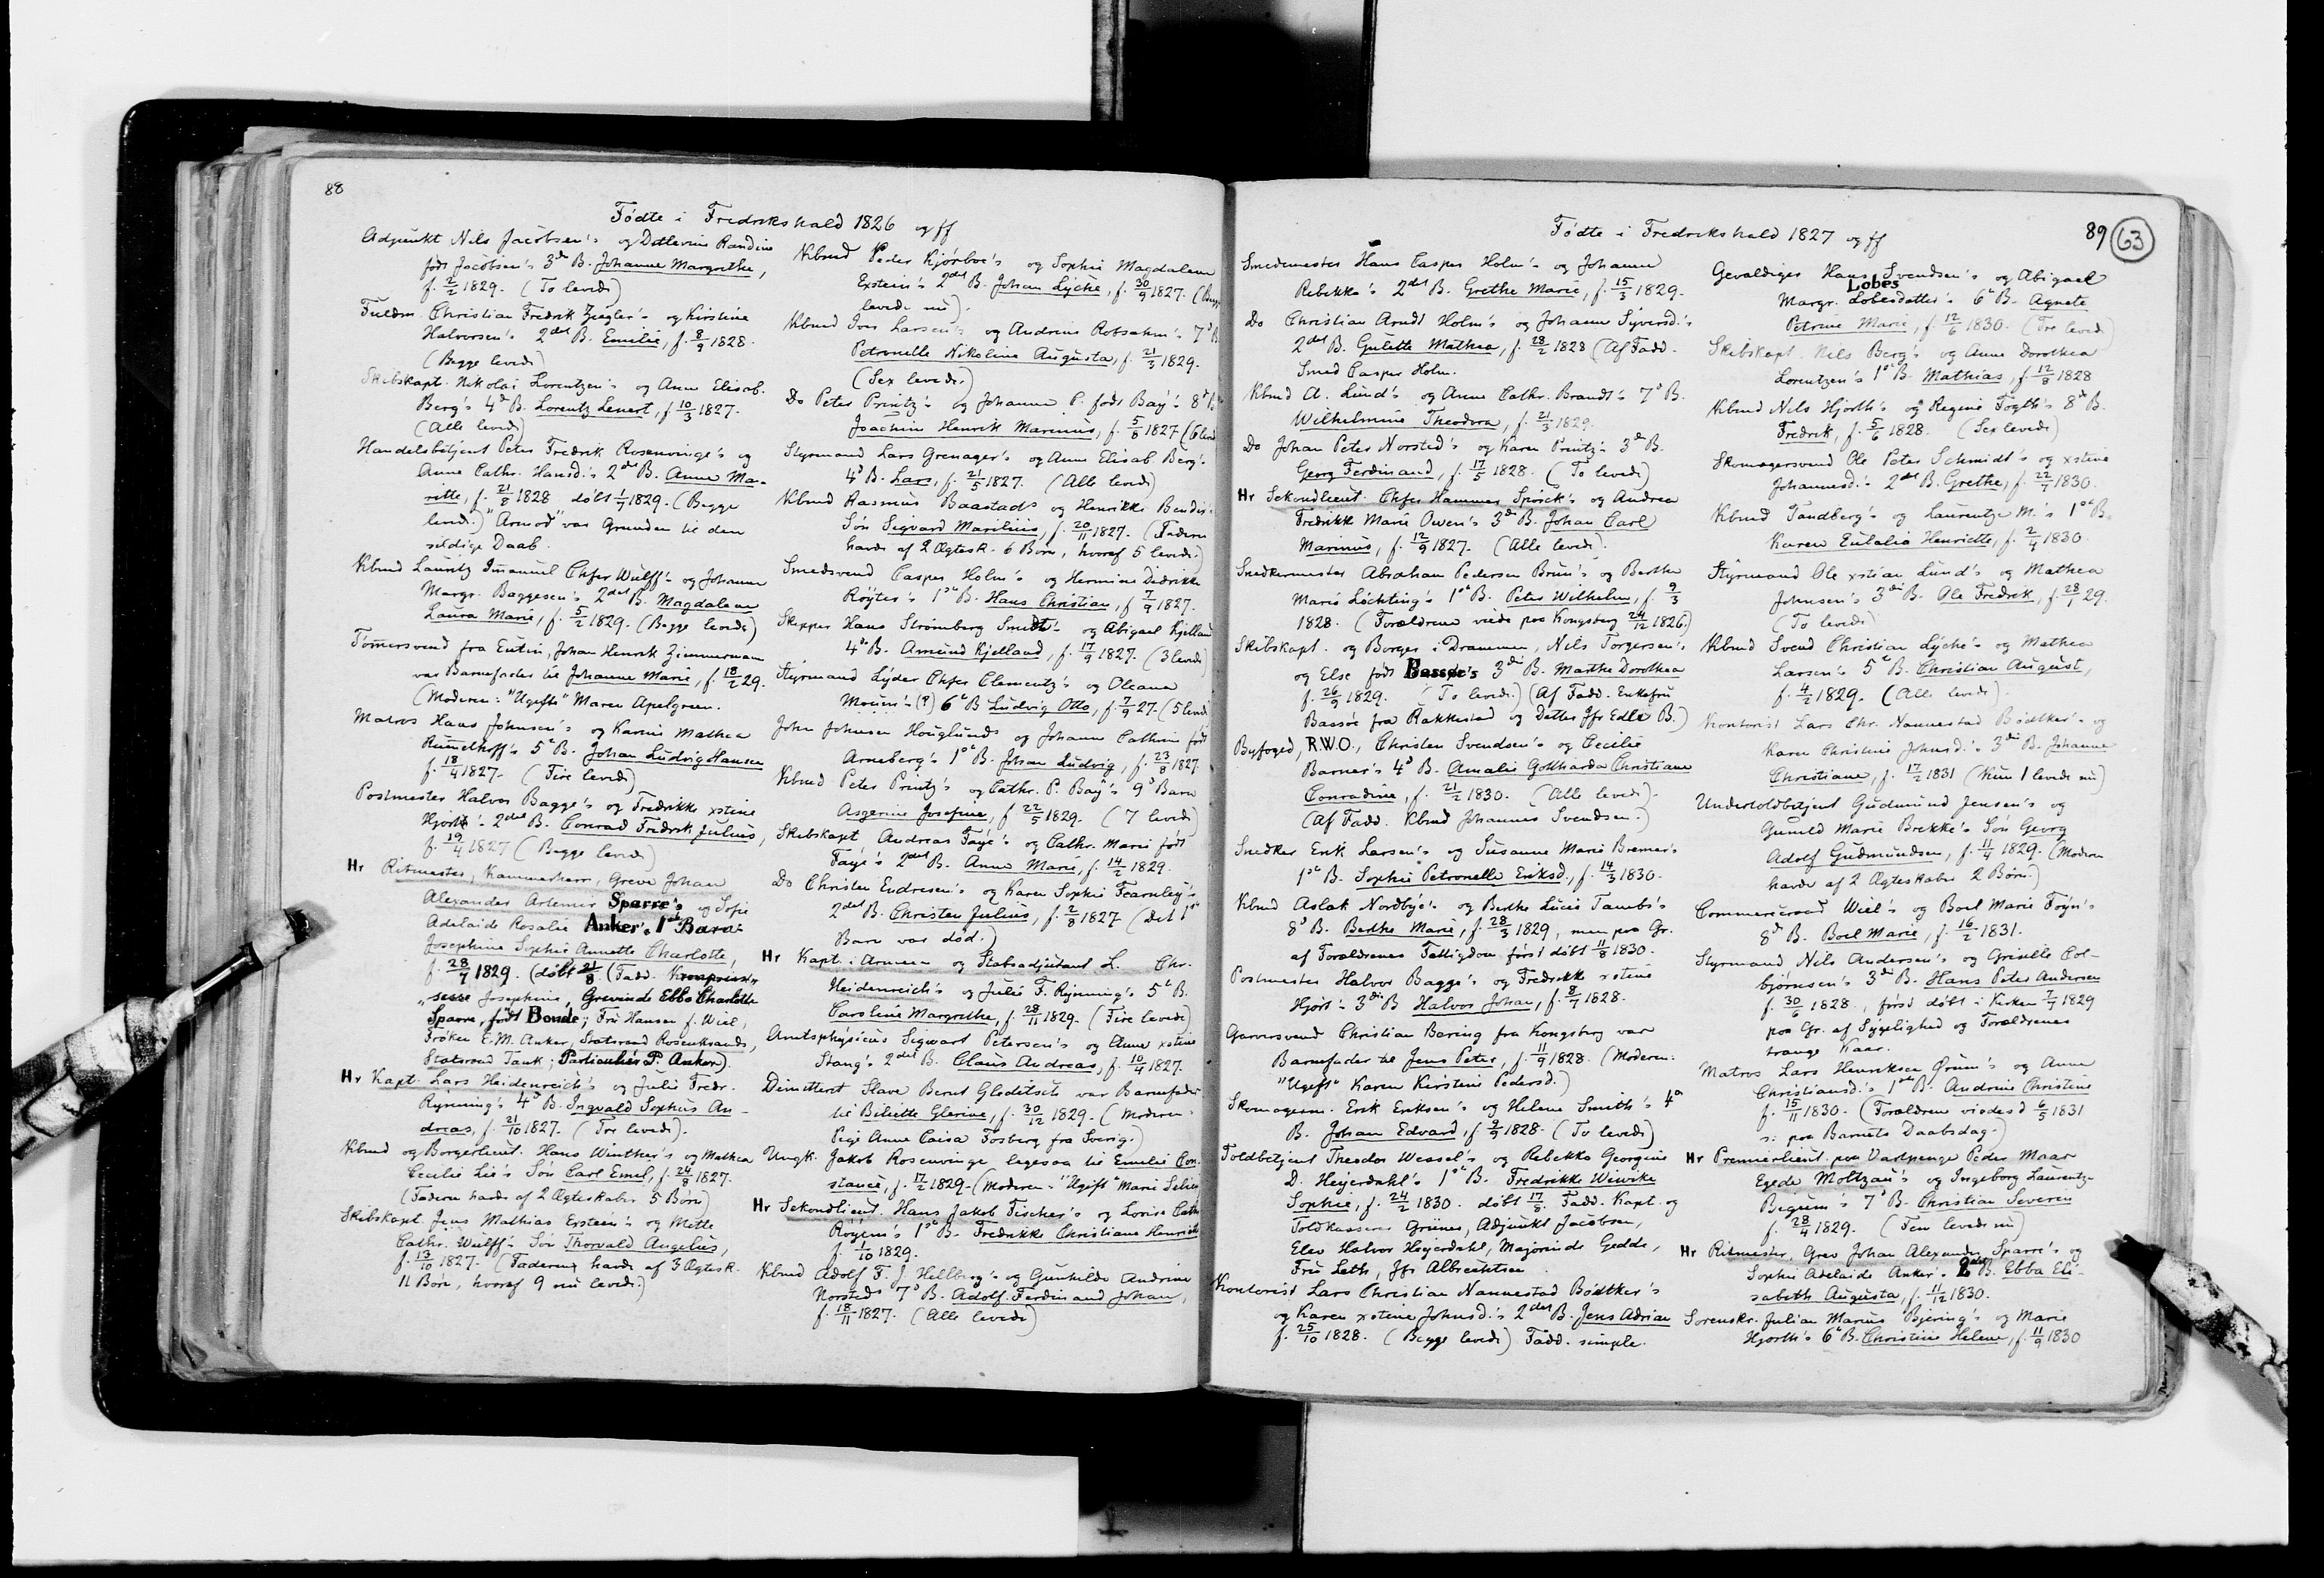 88
Fødte i Fredrikshald 1826 og ff
Adjunkt Nils Jacobsen's og Detlevine Randine
født Jacobsen's 3die B. Johanne Margrethe,
f. 2/2 1829. (To levede)
Fuldm. Christian Fredrik Ziegler's og Kirstine
Halvorsen's 2det B. Emilie, f. 8/9 1828.
(Begge levede)
Skibskapt. Nikolai Lorentzen's og Anne Elisab.
Berg's 4de B. Lorentz Lenert, f 10/3 1827.
(Alle levede)
Handelsbetjent Peter Fredrik Rosenvinge's og
Anne Cathr. Hansd.'s 2det B. Anne Ma-
ritte, f. 21/8 1828 døbt 1/7 1829. (Begge
leved.) "Armod" var Grunden til den
sildige Daab.
Kbmd Lauritz Imanuel Chfer Wulff's og Johanne
Margr. Baggesen's 2det B. Magdalene
Laura Marie, f. 5/2 1829. (Begge levede)
Tømersvend fra Eutin, Johan Henrik Zimmermann
var Barnefader til Johanne Marie, f. 18/2 29.
(Moderen: "Ugifte" Maren Apelgreen.
Matros Hans Johnsen's og Karine Mathea
Rumelhoff's 5te B. Johan Ludvig Hansen
f. 18/4 1827. (Fire levede)
Postmester Halvor Bagge's og Fredrikke xstine
Hjorth's 2det B. Conrad Fredrik Julius,
f. 19/4 1827 (Begge levede)
Hr Ritmester, Kammerherr, Greve Johan
Alexander Artemir Sparre's og Sofie
Adelaide Rosalie Anker's 1ste Barn
Josephine Sophie Annette Charlotte,
f. 28/7 1829. (døbt 21/8 (Fadd. Kronprins-
"sesse Josephine, Grevinde Ebba Charlotte
Sparre, født Bonde; Fru Hansen f. Wiel,
Frøken E. M. Anker, Statsraad Rosenkrands,
Statsraad Tank; Particulier P. Anker).
Hr Kapt. Lars Heidenreich's og Julie Fredr.
Rynning's 4de B. Ingvald Sophus An-
dreas, f. 21/10 1827. (Tre levede).
Kbmd og Borgerlieut. Hans Winther's og Mathea
Cecilie Lie's Søn Carl Emil, f. 24/8 1827.
(Faderen havde af 2 Ægteskaber 5 Børn)
Skibskapt. Jens Mathias Exstein's og Mette
Cathr. Wulff's Søn Thorvald Angelius,
f. 13/10 1827. (Faderen havde af 3 Ægtesk.
11 Børn, hvoraf 9 nu levede.)
Kbmd Peder Kjørboe's og Sophie Magdalene
Exstein's 2det B. Johan Lyche, f. 30/9 1827. (Begge
levede nu).
Kbmd Iver Larsen's og Andrine Robsahm's 7de B.
Petronelle Nikoline Augusta, f. 21/3 1829.
(Sex levede.)
Do Peter Printz's og Johanne P. født Bay's 8de B.
Joachim Henrik Marinius, f. 5/8 1827 (6 leved
Styrmand Lars Grenager's og Anne Elisab. Berg's
4de B. Lars, f. 21/5 1827. (Alle levede)
Kbmd Rasmus Baastads og Henrikke Bendix's
Søn Segvard Marilius, f. 20/11 1827. (Faderen
havde af 2 Ægtesk. 6 Børn, hvoraf 5 levede.)
Smedsvend Casper Holm's og Hermine Didrikke
Røyter's 1ste B. Hans Christian, f 7/9 1827.
Skipper Hans Strømberg Smidt's og Abigael Kjelland
4de B. Amund Kjelland, f. 17/9 1827. (3 levede)
Styrmand Lyder Chfer Clementz's og Oleana
Mouin's (?) 6te B Ludvig Otto, f. 7/9 27. (5 levede
John Johnsen Houglunds og Johanne Cathrine født
Arneberg's 1ste B. Johan Ludvig, f. 23/8 1827.
Kbmd Peter Printz's og Cathr. P. Bay's 9de Barn
Asgerine Josefine, f 22/5 1829. (7 levede)
Skibskapt Andreas Faye's og Cathr. Marie født
Faye's 2det B. Anne Marie, f. 14/2 1829.
Do Christen Endresen's og Karen Sophie Fearnley's
2det B. Christen Julius, f. 2/8 1827 (det 1ste
Barn var død.)
Hr Kapt. i Armeen og Stabsadjutant L. Chr.
Heidenreich's og Julie F. Rynning's 5te B.
Caroline Margrethe, f. 28/11 1829. (Fire levede)
Amtsphysicus Segwart Petersen's og Anne xstine
Stang's 2det B. Claus Andreas, f. 10/4 1827.
Dimitteret Slave Bernt Gloditsch var Barnefader
til Biliette Glerine, f. 30/12 1829. (Moderen:
Pige Anne Caisa Fosberg fra Sverig.)
Ungk. Jakob Rosenvinge ligesaa til Emilie Con-
stance, f. 17/2 1829. (Moderen: "Ugift" Marie
Hr Sekondlieut. Hans Jakob Fischer's og Lovise Cath
Røyem's 1ste B. Fredrikke Christiane Henriette
f. 1/10 1829.
Kbmd Adolf F. J. Hellberg's og Gunhilde Andrine
Norsteds 7de B. Adolf Ferdinand Johan,
f. 18/11 1827. (Alle levede)
Fødte i Fredrikshald 1827 og ff
89 63
Smedemester Hans Casper Holm's og Johanne
Rebekka's 2det B. Grethe Marie, f. 15/3 1829.
Do Christian Arndt Holm's og Johanne Syversd.'s
2det B. Gulette Mathea, f. 28/2 1828 (Af Fadd.
Smed Casper Holm.
Kbmd A. Lund's og Anne Cathr. Brandt's 7de B.
Wilhelmine Theodora, f. 21/3 1829.
Do Johan Peter Norsted's og Karen Printz's 3die B.
Georg Ferdinand, f. 17/5 1828. (To levede)
Hr Sekondlieut. Chfer Hammer Spörck's og Andrea
Fredrikk Marie Owen's 3die B. Johan Carl
Marinus, f. 12/9 1827. (Alle levede).
Snedkermester Abraham Pedersen Brun's og Berthe
Marie Løchting's 1ste B. Peter Wilhelm, f. 9/3
1828. (Forældrene viede paa Kongsberg 24/12 1826.)
Skibskapt. og Borger i Drammen, Nils Torgersen's
og Else født Bassøe's 3die B. Marthe Dorothea
f. 26/9 1829. (To levede.) (Af Fadd. Enkefru
Bassøe fra Rakkestad og Datter Jfr Edle B.)
Byfoged, R.W.O., Christen Svendsen's og Cecilie
Barner's 4de B. Amalie Gotthardo Christiane
Conradine, f. 21/2 1830. (Alle levede).
(Af Fadd. Kbmd Johannes Svendsen.)
Snedker Erik Larsen's og Susanne Marie Bremer's
1ste B. Sophie Petronelle Eriksd., f. 14/3 1830.
Kbmd Aslak Nordbye's og Berthe Lucie Tambs's
8de B. Berthe Marie, f. 28/3 1829, men paa Gr.
af Forældrenes Fattigdom først døbt 11/8 1830.
Postmester Halvor Bagge's og Fredrikke xstine
Hjort's 3die B Halvor Johan, f. 8/7 1828.
Garversvend Christian Baring fra Kongsberg var
Barnefader til Jens Peter, f. 11/9 1828. (Moderen:
"Ugift" Karen Kirstine Pedersd.)
Skomagerm. Erik Eriksen's og Helene Smith's 4de
B. Johan Edvard, f 9/9 1828. (To levede)
Toldbetjent Theodor Wessel's og Rebekka Georgine
D. Heyerdahl's 1ste B. Fredrikke Wiwike
Sophie, f. 24/2 1830. døbt 17/5. Fadd. Kapt. og
Toldkasserer Grüner, Adjunkt Jacobsen,
Elev Halvor Heyerdahl, Majorinde Gedde,
Fru Leth, Jfr Albrechtsen.
Kontorist Lars Christian Nannestad Bødtker's
og Karen xstine Johnsd.'s 2det B. Jens Adrian
f. 25/10 1828. (Begge levede) Fadd. simple.
Gevaldiger Hans Svendsen's og Abigael
Lobes
Margr. Lobesdatter's 6te B. Agnete
Petrine Marie, f. 12/6 1830. (Tre levede)
Skibskapt. Nils Berg's og Anne Dorothea
Lorentzen's 1ste B. Mathias, f. 12/8 1828
Kbmd Nils Hjorth's og Regine Fogth's 8de B.
Fredrik, f. 5/6 1828. (Sex levede)
Skomagersvend Ole Peter Schmidt's og xstine
Johannesd.'s 2det B. Grethe, f. 22/7 1830.
Kbmd Tandberg's og Laurentze M.'s 1ste B.
Karen Eulalia Henriette, f. 2/4 1830.
Styrmand Ole xstian Lund's og Mathea
Johnsen's 3die B. Ole Fredrik, f. 28/1 29.
(To levede)
Kbmd Svend Christian Lyche's og Mathea
Larsen's 5te B. Christian August,
f. 4/2 1829. (Alle levede).
Kontorist Lars Chr. Nannestad Bødtker's og
Karen Christine Johnsd.'s 3die B. Johanne
Christiane, f. 17/2 1831 (Kun 1 levede nu)
Undertoldbetjent Gudmund Jensen's og
Gunild Marie Brekke's Søn Georg
Adolf Gudmundsen, f. 11/4 1829. (Moderen
havde af 2 Ægteskaber 2 Børn.)
Commerceraad Wiel's og Boel Marie Foyn's
8de B. Boel Marie, f. 16/2 1831.
Styrmand Nils Andersen's og Griselle Col-
bjørnsen's 3die B. Hans Peter Andersen
f. 30/6 1828, først døbt i Kirken 7/7 1829
paa Gr. af Sygelighed og Forældrenes
trange Kaar.
Matros Lars Henriksen Ørum's og Anne
Christiansd.'s 1ste B. Andrine Christine
f. 15/11 1830. (Forældrene viedes d 6/5 1831
ɔ: paa Barnets Daabsdag.)
Hr Premierlieut. paa Vartpenge Peder Maar
Egede Moltzau's og Ingeborg Laurentze
Bigum's 7de B. Christian Severin
f. 28/4 1829. (Fem levede nu)
Hr Ritmester, Grev Johan Alexander Sparre's og
Sophie Adelaide Anker's 2det B. Ebba Eli-
sabeth Augusta, f. 11/12 1830.
Sorenskr. Julian Marius Bjering's og Marie
Hjorth's 6te B. Christine Helene, f. 11/9 1830